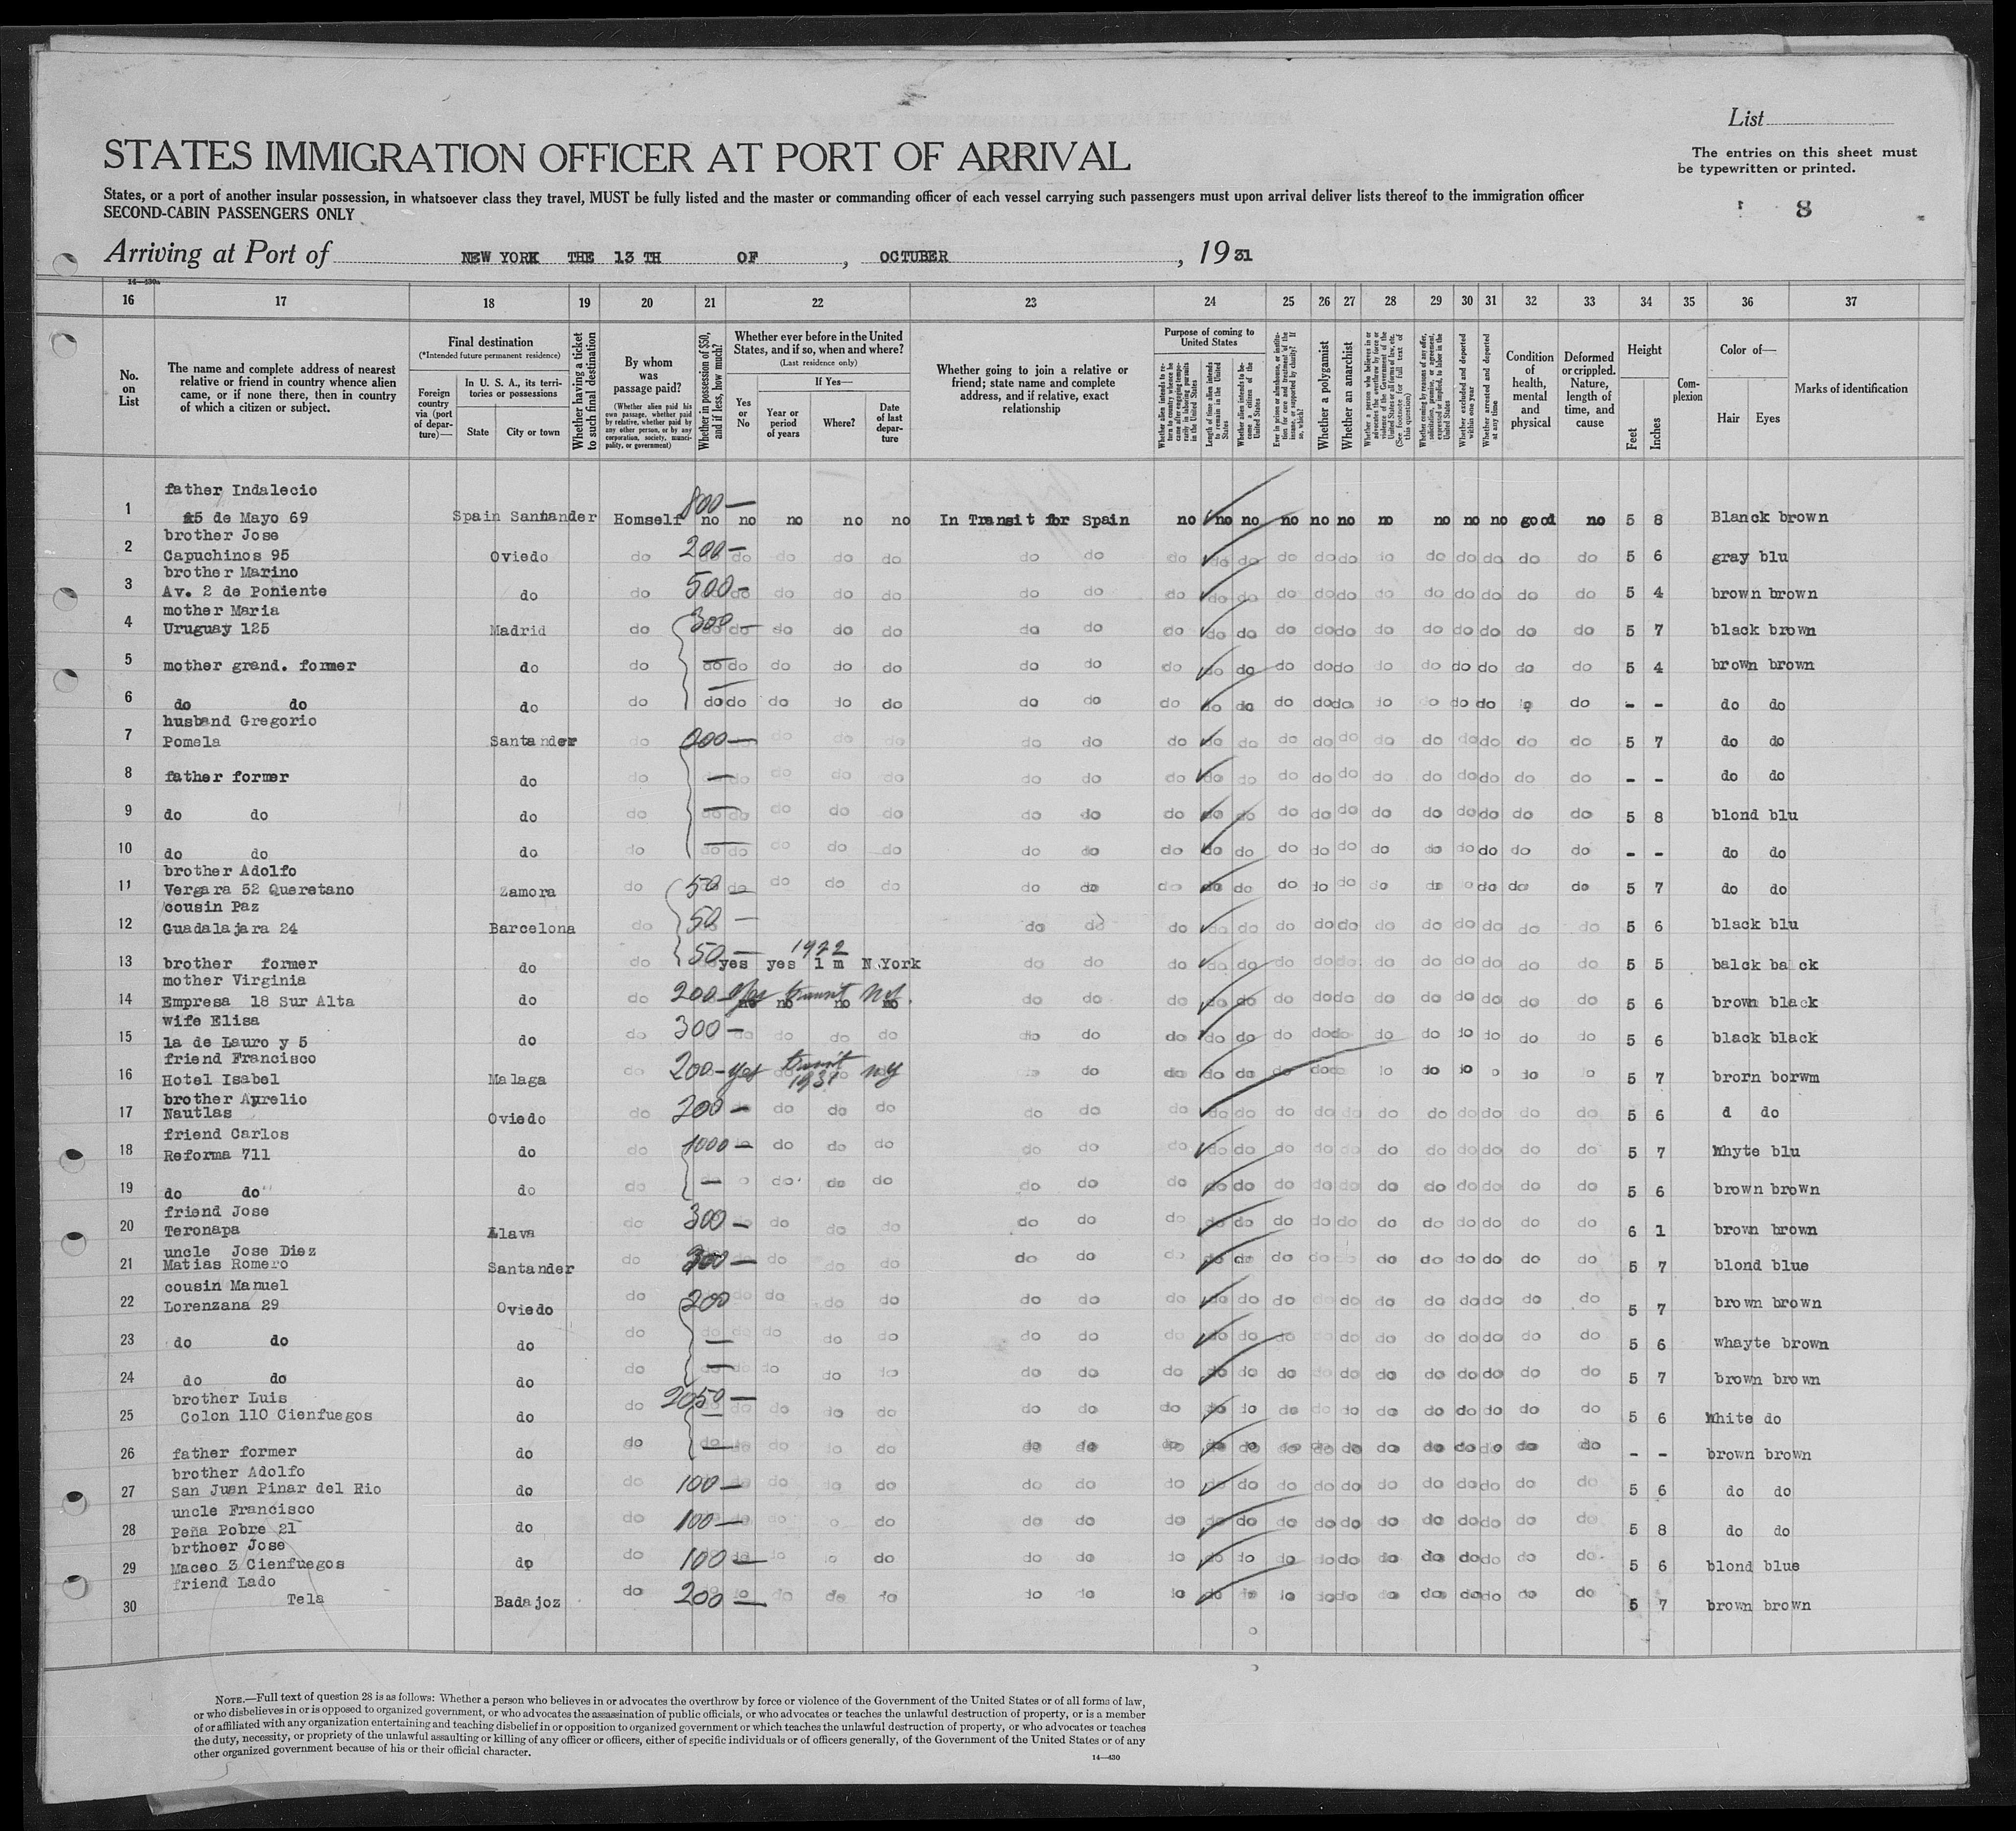 List
STATES IMMIGRATION OFFICER AT PORT OF ARRIVAL
The entries on this sheet must
be typewritten or printed.
States, or a port of another insular possession, in whatsoever class they travel, MUST be fully listed and the master or commanding officer of each vessel carrying such passengers must upon arrival deliver lists thereof to the immigration officer
SECOND-CABIN PASSENGERS ONLY
8
Arriving at Port of NEW YORK THE 13 TH OF , OCTUBER , 19 31
14—430a
16 17 18 19 20 21 22 23 24 25 26 27 28 29 30 31 32 33 34 35 36 37
No. on List
The name and complete address of nearest relative or friend in country whence alien came, or if none there, then in country of which a citizen or subject.
Final destination
(*Intended future permanent residence)
Foreign country via (port of departure)—
In U. S. A., its territories or possessions
State City or town
Whether having a ticket to such final destination
By whom was passage paid?
(Whether alien paid his own passage, whether paid by relative, whether paid by any other person, or by any corporation, society, municipality, or government)
Whether in possession of $50, and if less, how much?
Whether ever before in the United States, and if so, when and where?
(Last residence only)
Yes or No
If Yes—
Year or period of years
Where?
Date of last departure
Whether going to join a relative or friend; state name and complete address, and if relative, exact relationship
Purpose of coming to United States
Whether alien intends to return to country whence he came after engaging temporarily in laboring pursuits in the United States
Length of time alien intends to remain in the United States
Whether alien intends to become a citizen of the United States
Ever in prison or almshouse, or institution for care and treatment of the insane, or supported by charity? If so, which?
Whether a polygamist
Whether an anarchist
Whether a person who believes in or advocates the overthrow by force or violence of the Government of the United States or all forms of law, etc. (See footnote for full text of this question)
Whether coming by reasons of any offer, solicitation, promise, or agreement, expressed or implied, to labor in the United States
Whether excluded and deported within one year
Whether arrested and deported at any time
Condition of health, mental and physical
Deformed or crippled. Nature, length of time, and cause
Height
Feet Inches
Complexion
Color of—
Hair Eyes
Marks of identification
father Indalecio
1 15 de Mayo 69 Spain Santander Homself 800— no no no no no In Transit for Spain no no no no no no no no no no good no 5 8 Blanck brown
brother Jose
2 Capuchinos 95 Oviedo do 200— do do do do do do do do do do do do do do do do do do 5 6 gray blu
brother Marino
3 Av. 2 de Poniente do do 500— do do do do do do do do do do do do do do do do do do 5 4 brown brown
mother Maria
4 Uruguay 125 Madrid do 300— do do do do do do do do do do do do do do do do do do 5 7 black brown
5 mother grand. former do do — do do do do do do do do do do do do do do do do do do do 5 4 brown brown
6 do do do do — do do do do do do do do do do do do do do do do do do - - do do
husband Gregorio
7 Pomela Santander do 200— do do do do do do do do do do do do do do do do do 5 7 do do
8 father former do do — do do do do do do do do do do do do do do do do do do - - do do
9 do do do do — do do do do do do do do do do do do do do do do do do do 5 8 blond blu
10 do do do do — do do do do do do do do do do do do do do do do do do do - - do do
brother Adolfo
11 Vergara 52 Queretano Zamora do 50— do do do do do do do do do do do do do do do do do do 5 7 do do
cousin Paz
12 Guadalajara 24 Barcelona do 50— do do do do do do do do do do do do do do 5 6 black blu
13 brother former do do 50— yes yes 1922 1 m N.York do do do do do do do do do do do do do do 5 5 balck back
mother Virginia
14 Empresa 18 Sur Alta do do 200— yes transit NY. no no no no do do do do do do do do do do do do do do 5 6 brown black
wife Elisa
15 1a de Lauro y 5 do do 300— do do do do do do do do do do do do do do do do do do 5 6 black black
friend Francisco
16 Hotel Isabel Malaga do 200— yes transit 1931 NY do do do do do do do do do do do do do 5 7 brorn borwm
brother Aurelio
17 Nautlas Oviedo do 200— do do do do do do do do do do do do do do do do do do 5 6 d do
friend Carlos
18 Reforma 711 do do 1000— do do do do do do do do do do do do do do do do do do 5 7 Whyte blu
19 do do do do — do do do do do do do do do do do do do do do do do 5 6 brown brown
friend Jose
20 Teronapa Alava do 300— do do do do do do do do do do do do do do do do do 6 1 brown brown
uncle Jose Diez
21 Matias Romero Santander do 300— do do do do do do do do do do do do do do do do do do 5 7 blond blue
cousin Manuel
22 Lorenzana 29 Oviedo do 200 do do do do do do do do do do do do do do do do do do 5 7 brown brown
23 do do do do — do do do do do do do do do do do do do do do do do do 5 6 whayte brown
24 do do do do — do do do do do do do do do do do do do do do do do do 5 7 brown brown
brother Luis
25 Colon 110 Cienfuegos do do 2050— do do do do do do do do do do do do do do do do do do 5 6 White do
26 father former do do — do do do do do do do do do do do do do do do do do do - - brown brown
brother Adolfo
27 San Juan Pinar del Rio do do 100— do do do do do do do do do do do do do do do do do do 5 6 do do
uncle Francisco
28 Peña Pobre 21 do do 100— do do do do do do do do do do do do do do do do do 5 8 do do
brthoer Jose
29 Maceo 3 Cienfuegos do do 100— do do do do do do do do do do do do do do do do do 5 6 blond blue
friend Lado
30 Tela Badajoz do 200— do do do do do do do do do do do do do do do do do do 5 7 brown brown
NOTE.—Full text of question 28 is as follows: Whether a person who believes in or advocates the overthrow by force or violence of the Government of the United States or of all forms of law,
or who disbelieves in or is opposed to organized government, or who advocates the assassination of public officials, or who advocates or teaches the unlawful destruction of property, or is a member
of or affiliated with any organization entertaining and teaching disbelief in or opposition to organized government or which teaches the unlawful destruction of property, or who advocates or teaches
the duty, necessity, or propriety of the unlawful assaulting or killing of any officer or officers, either of specific individuals or of officers generally, of the Government of the United States or of any
other organized government because of his or their official character.
14—430